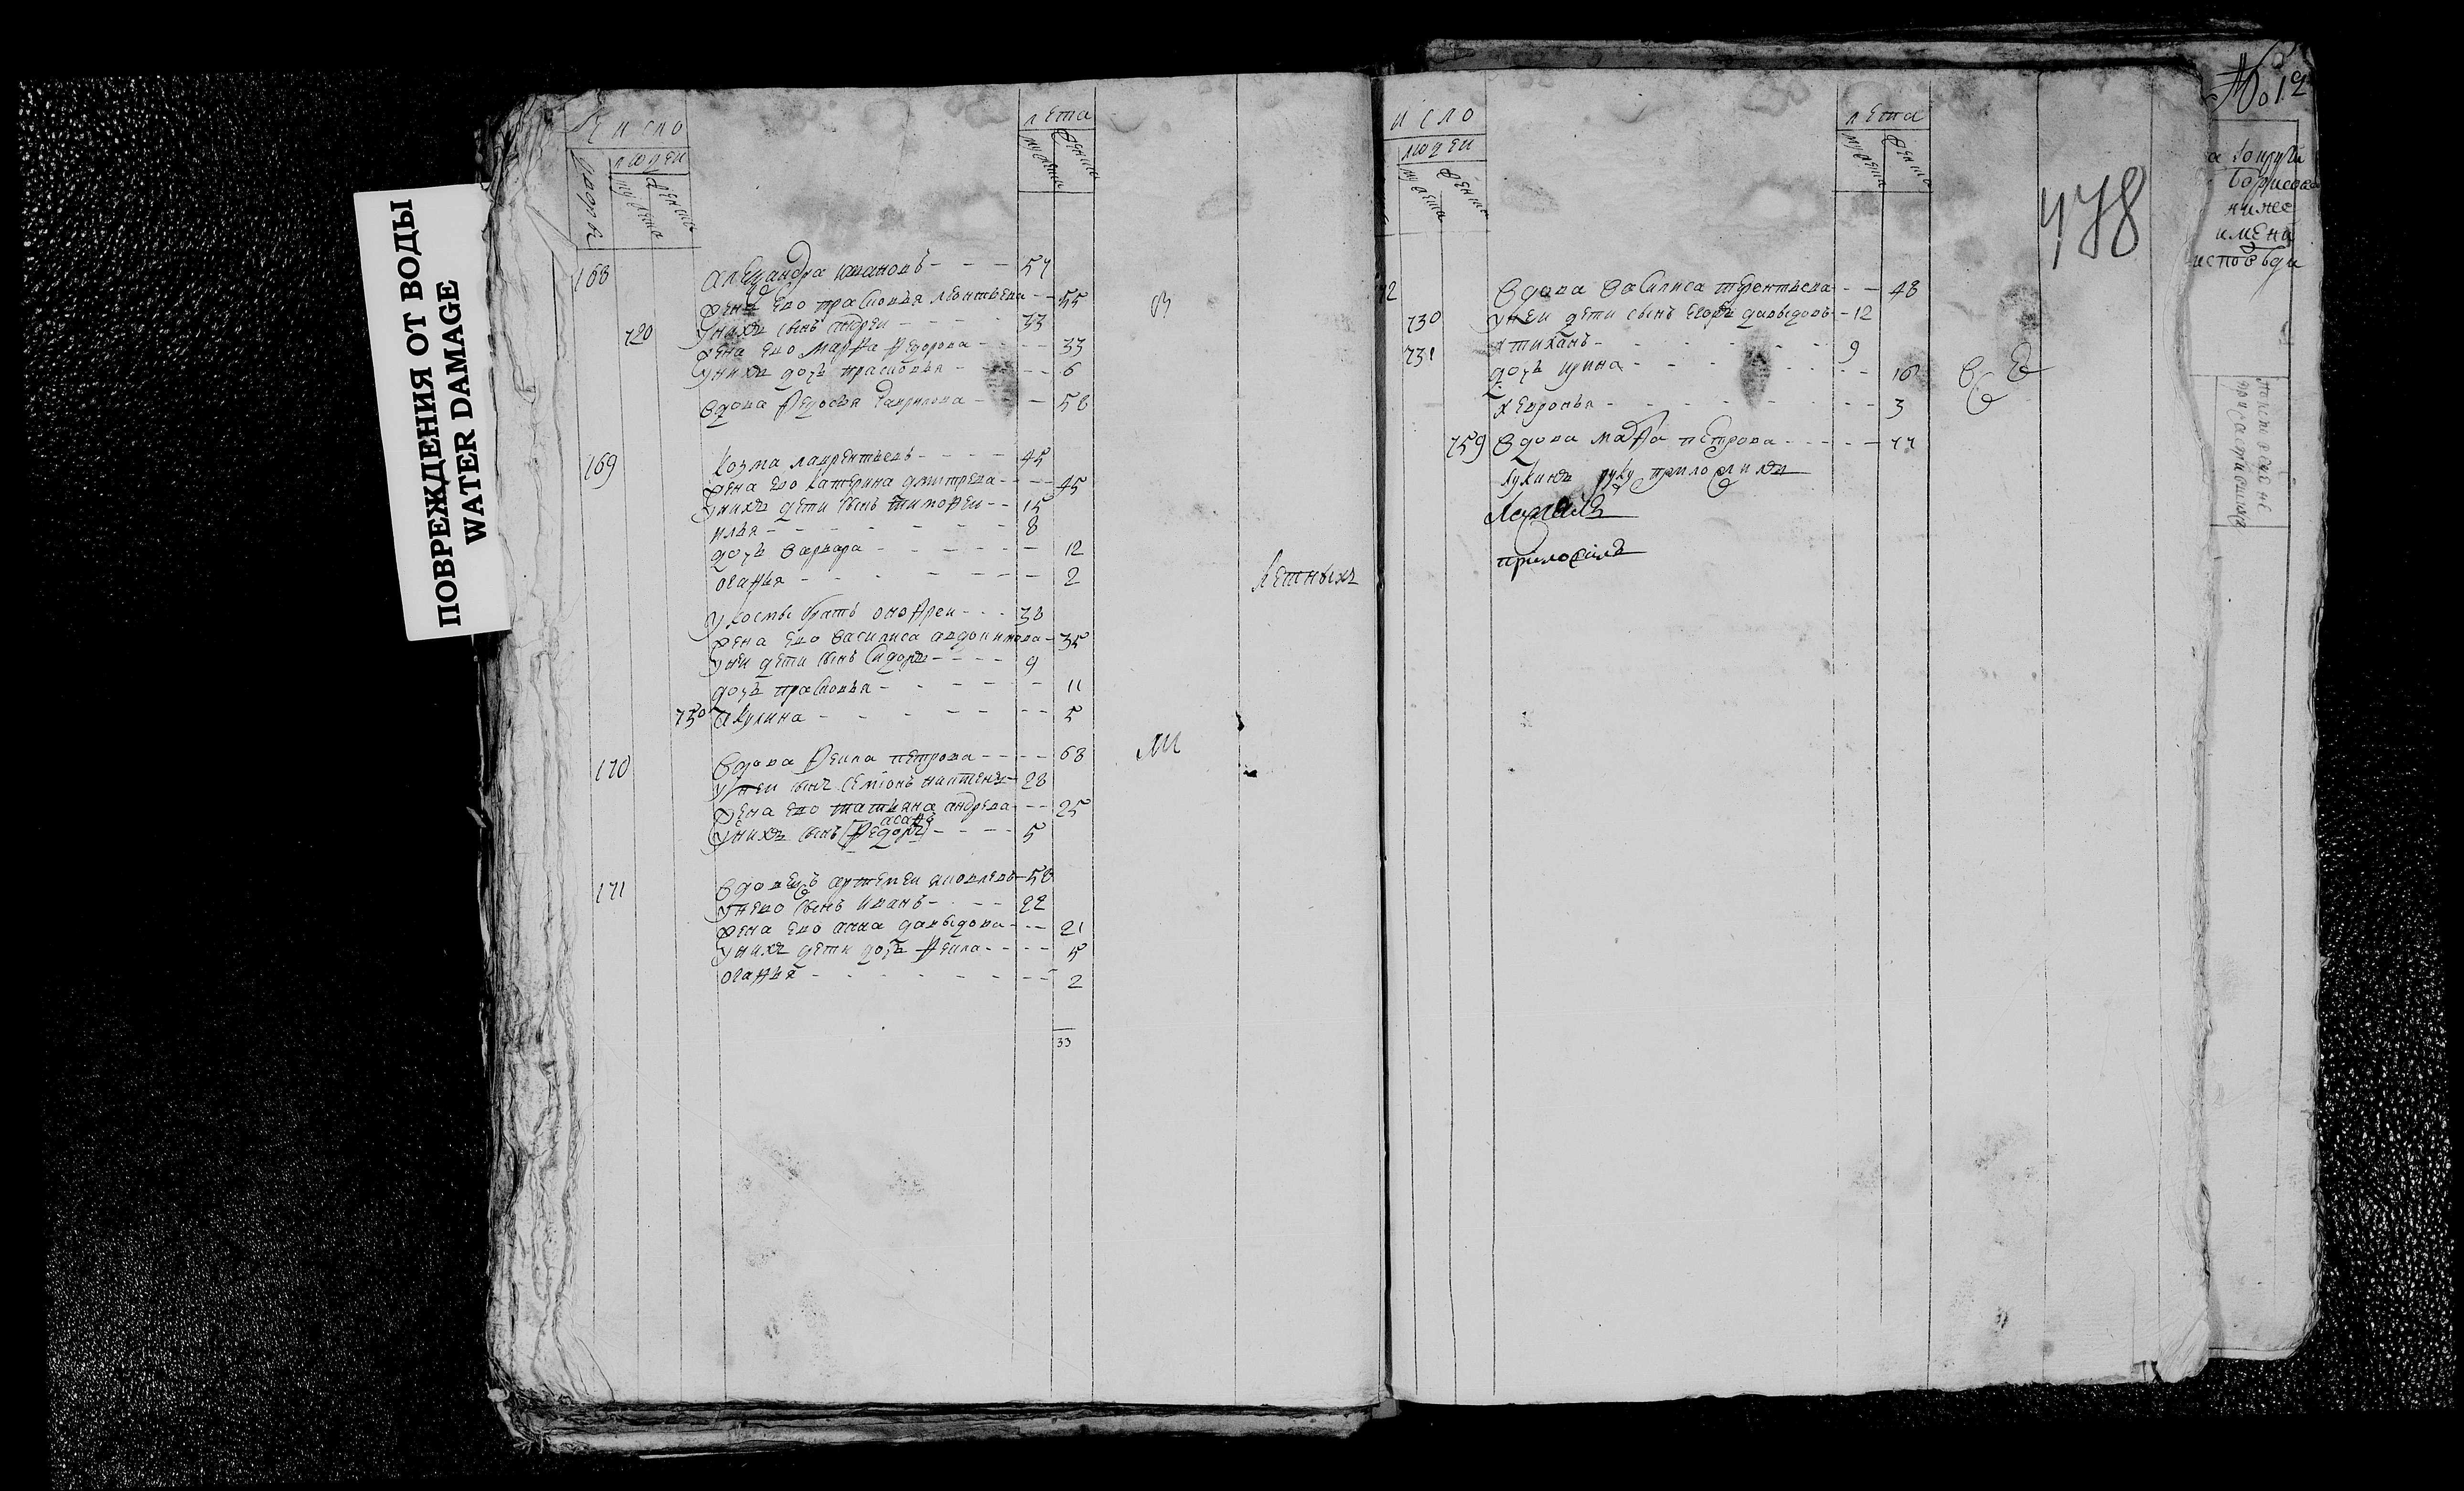 ПОВРЕЖДЕНИЯ ОТ ВОДЫ
WATER DAMAGE
Число
людеи
лета
мужеска
женска
168
Александра Ивановъ - - - 54
жена ево прасковья леонтьева - - 55
720 у нихъ сынъ андреи - - - 33
жена ево марфа федорова - - - 33
у нихъ дочь прасковья - - - 6
вдова Федосья гаврилова - - 58
169
козма лаврентьевъ - - - 45
жена ево катерина дмитрева - - - 45
у нихъ дети сынъ тимофеи - - 15
илья - - - 8
дочь варвара - - - 12
огафья - - - 2
у козмы братъ онофреи - - - 38
жена ево василиса авдокимова - 35
у неи дети сынъ сидоръ - - - 9
дочь прасковья - - - 11
750 акулина - - - 5
170
вдова Фекла петрова - - - 68
у неи сынъ семионъ - 28
жена ево татьяна андреева - - 25
асафъ
у нихъ сынъ (Федоръ) - - - 5
171
вдовецъ артемеи яковлевъ - 58
у нево сынъ иванъ - - - 22
жена ево анна давыдова - - - 21
у нихъ дети дочь Фекла - - - 5
огафья - - - 2
33
в
летныхъ
ли
исло
людеи
мужеска
женска
лета
мужеска
женска
478
2 вдова василиса терентьева - - 48
730 у неи дети сынъ егоръ давыдовъ - 12
731 тиханъ - - - 9
дочь ирина - - - 16
хевронья - - - 3
759 вдова марфа петрова - - -
руку приложили
приложилъ
все
№ 12
Борисова
ниже
имени
исповѣди